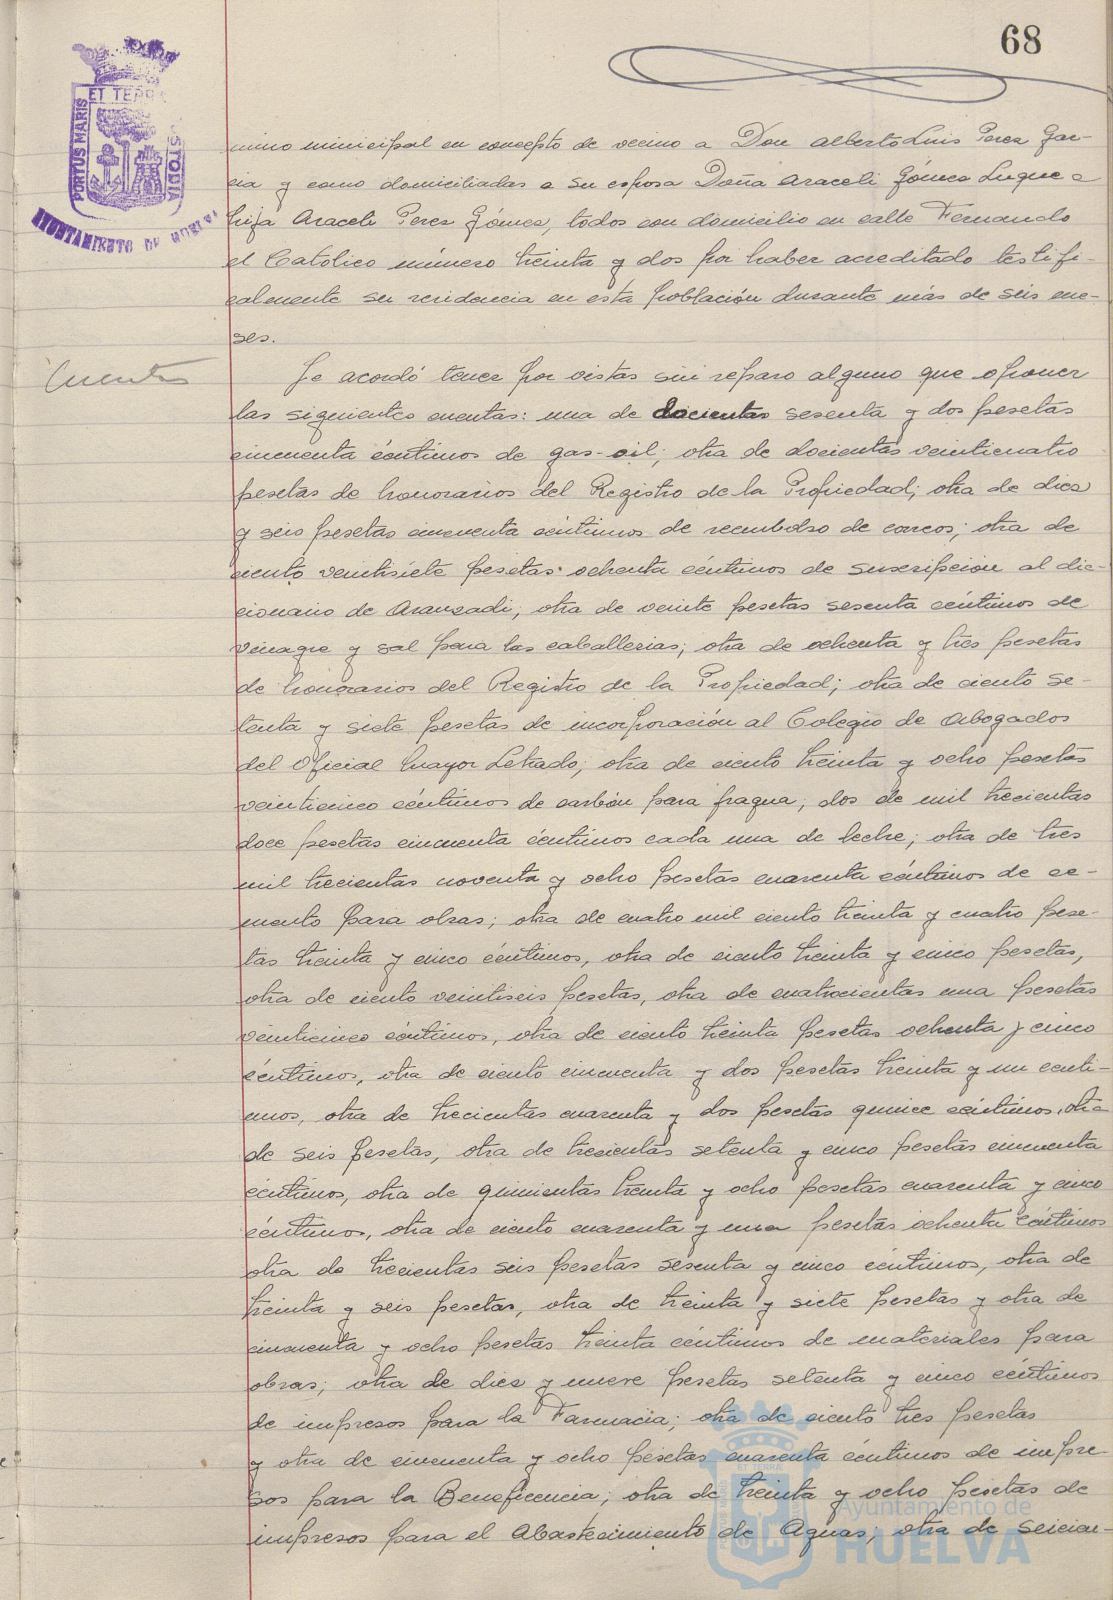 68
ET TERRÆ
PORTUS MARIS
CUSTODIA
AYUNTAMIENTO DE HUELVA
mino municipal en concepto de vecino a Don Alberto Luis Perez Gar-
cia y como domiciliadas a su esposa Doña Araceli Gómez Luque e
hija Araceli Perez Gómez, todos con domicilio en calle Fernando
el Católico número treinta y dos por haber acreditado testifi-
calmente su residencia en esta población durante más de seis me-
ses.
Cuentas
Se acordó tener por vistas sin reparo alguno que oponer
las siguientes cuentas: una de docientas sesenta y dos pesetas
cincuenta céntimos de gas-oil; otra de docientas veinticuatro
pesetas de honorarios del Registro de la Propiedad; otra de diez
y seis pesetas cincuenta céntimos de reembolso de correos; otra de
ciento veintisiete pesetas ochenta céntimos de suscripción al dic-
cionario de Aranzadi; otra de veinte pesetas sesenta céntimos de
vinagre y sal para las caballerias; otra de ochenta y tres pesetas
de honorarios del Registro de la Propiedad; otra de ciento se-
tenta y siete pesetas de incorporación al Colegio de Abogados
del Oficial Mayor Letrado; otra de ciento treinta y ocho pesetas
veinticinco céntimos de carbón para fragua; dos de mil trecientas
doce pesetas cincuenta céntimos cada una de leche; otra de tres
mil trecientas noventa y ocho pesetas cuarenta céntimos de ce-
mento para obras; otra de cuatro mil ciento treinta y cuatro pese-
tas treinta y cinco céntimos, otra de ciento treinta y cinco pesetas,
otra de ciento veintiseis pesetas, otra de cuatrocientas una pesetas
veinticinco céntimos, otra de ciento treinta pesetas ochenta y cinco
céntimos, otra de ciento cincuenta y dos pesetas treinta y un cénti-
mos, otra de trecientas cuarenta y dos pesetas quince céntimos, otra
de seis pesetas, otra de trecientas setenta y cinco pesetas cincuenta
céntimos, otra de quinientas treinta y ocho pesetas cuarenta y cinco
céntimos, otra de ciento cuarenta y una pesetas ochenta céntimos
otra de trecientas seis pesetas sesenta y cinco céntimos, otra de
treinta y seis pesetas, otra de treinta y siete pesetas y otra de
cincuenta y ocho pesetas treinta céntimos de materiales para
obras; otra de diez y nueve pesetas setenta y cinco céntimos
de impresos para la Farmacia; otra de ciento tres pesetas
y otra de cincuenta y ocho pesetas cuarenta céntimos de impre-
sos para la Beneficencia; otra de treinta y ocho pesetas de
impresos para el Abastecimiento de Aguas, otra de seicien-
Ayuntamiento de
HUELVA